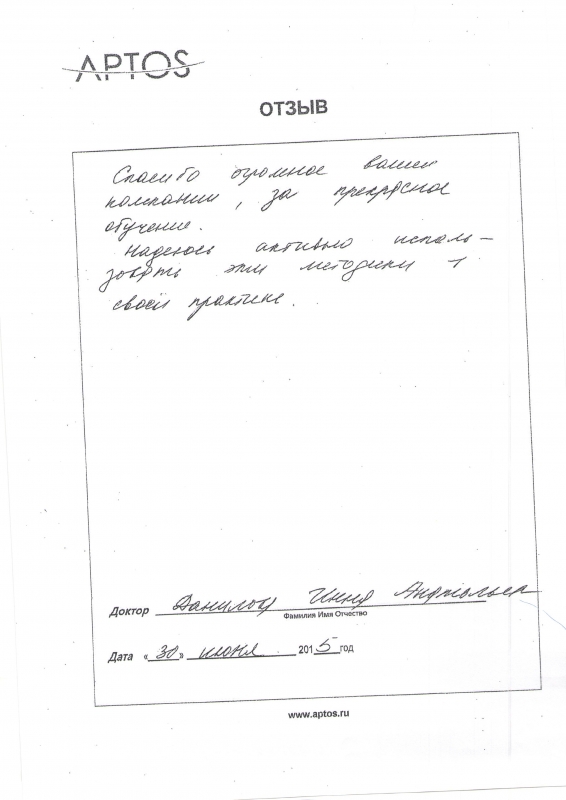 APTOS
ОТЗЫВ
Спасибо огромное вашей
компании, за прекрасное
обучение.
Надеюсь активно исполь-
зовать эти методики в
своей практике.
Доктор Инна
Фамилия Имя Отчество
Дата «30» июня 2015 год
www.aptos.ru